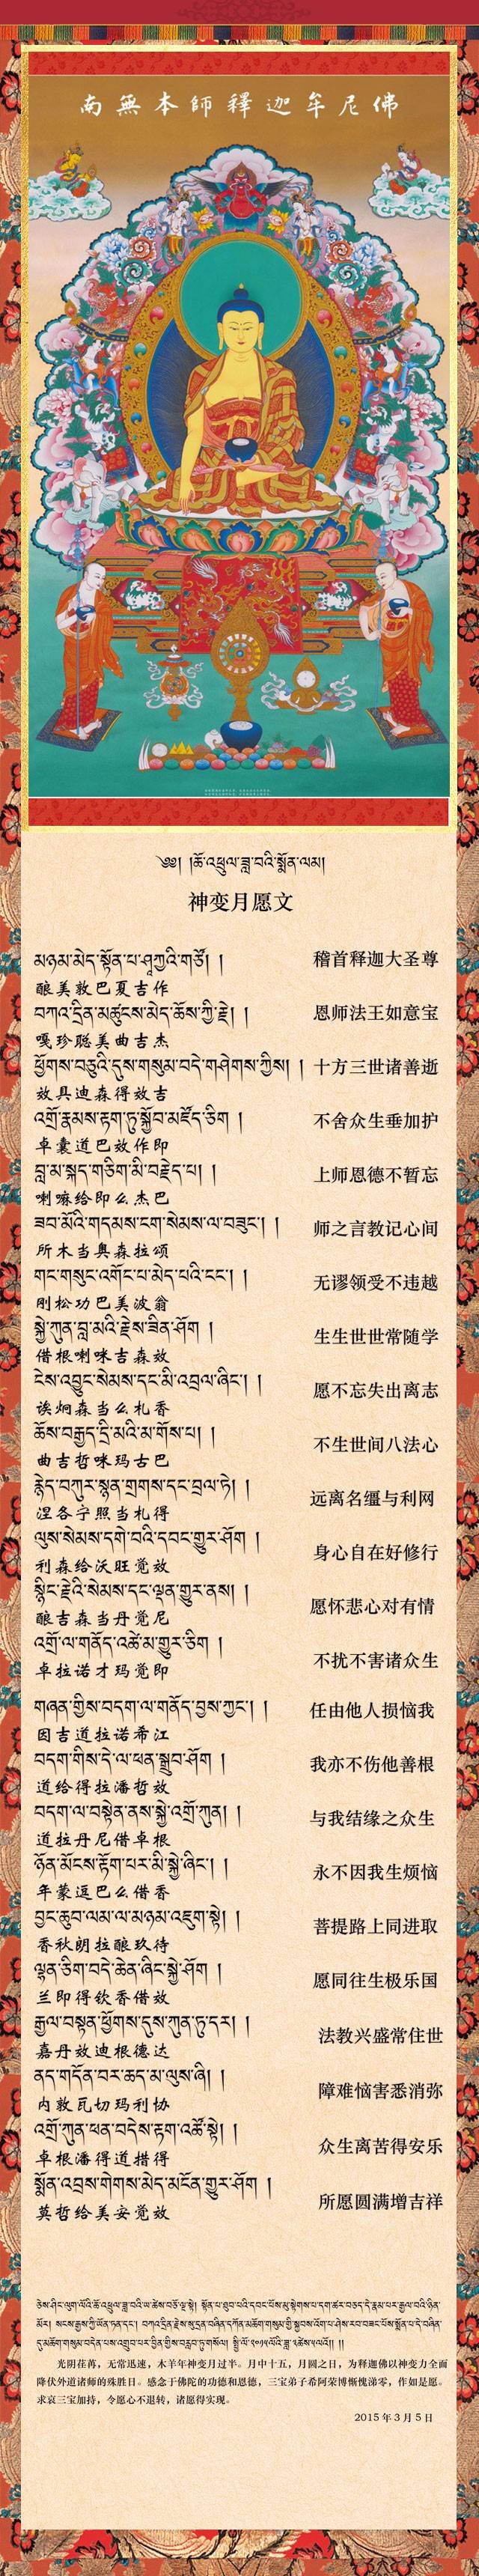 南無本師釋迦牟尼佛
༄༅། །ཆོ་འཕྲུལ་ཟླ་བའི་སྨོན་ལམ།
神变月愿文
མཉམ་མེད་སྟོན་པ་ཤཱཀྱའི་གཙོ། །
稽首释迦大圣尊
酿美敦巴夏吉作
བཀའ་དྲིན་མཚུངས་མེད་ཆོས་ཀྱི་རྗེ། །
恩师法王如意宝
嘎珍聪美曲吉杰
ཕྱོགས་བཅུའི་དུས་གསུམ་བདེ་གཤེགས་ཀྱིས། །
十方三世诸善逝
效具迪森得效吉
འགྲོ་རྣམས་རྟག་ཏུ་སྐྱོབ་མཛོད་ཅིག །
不舍众生垂加护
卓囊道巴效作即
བླ་མ་སྐད་གཅིག་མི་བརྗེད་པ། །
上师恩德不暂忘
喇嘛给即么杰巴
ཟབ་མོའི་གདམས་ངག་སེམས་ལ་བཟུང་། །
师之言教记心间
所木当奥森拉颂
གང་གསུང་འགོང་པ་མེད་པའི་ངང་། །
无谬领受不违越
刚松功巴美波翁
སྐྱེ་ཀུན་བླ་མའི་རྗེས་ཟིན་ཤོག །
生生世世常随学
借根喇咪吉森效
ངེས་འབྱུང་སེམས་དང་མི་འབྲལ་ཞིང་། །
愿不忘失出离志
诶炯森当么札香
ཆོས་བརྒྱད་དྲི་མའི་མ་གོས་པ། །
不生世间八法心
曲吉哲咪玛古巴
རྙེད་བཀུར་སྙན་གྲགས་དང་བྲལ་ཏེ། །
远离名缰与利网
涅各宁照当札得
ལུས་སེམས་དགེ་བའི་དབང་གྱུར་ཤོག །
身心自在好修行
利森给沃旺觉效
སྙིང་རྗེའི་སེམས་དང་ལྡན་གྱུར་ནས། །
愿怀悲心对有情
酿吉森当丹觉尼
འགྲོ་ལ་གནོད་འཚེ་མ་གྱུར་ཅིག །
不扰不害诸众生
卓拉诺才玛觉即
གཞན་གྱིས་བདག་ལ་གནོད་བྱས་ཀྱང་། །
任由他人损恼我
因吉道拉诺希江
བདག་གིས་དེ་ལ་ཕན་སྒྲུབ་ཤོག །
我亦不伤他善根
道给得拉潘哲效
བདག་ལ་བསྟེན་ནས་སྐྱེ་འགྲོ་ཀུན། །
与我结缘之众生
道拉丹尼借卓根
ཉོན་མོངས་རྟོག་པར་མི་སྐྱེ་ཞིང་། །
永不因我生烦恼
年蒙逗巴么借香
བྱང་ཆུབ་ལམ་ལ་མཉམ་འཇུག་སྟེ། །
菩提路上同进取
香秋朗拉酿玖待
ལྷན་ཅིག་བདེ་ཆེན་ཞིང་སྐྱེ་ཤོག །
愿同往生极乐国
兰即得钦香借效
རྒྱལ་བསྟན་ཕྱོགས་དུས་ཀུན་ཏུ་དར། །
法教兴盛常住世
嘉丹效迪根德达
ནད་གདོན་བར་ཆད་མ་ལུས་ཞི། །
障难恼害悉消弥
内敦瓦切玛利协
འགྲོ་ཀུན་ཕན་བདེས་རྟག་འཚོ་སྟེ། །
众生离苦得安乐
卓根潘得道措得
སྨོན་འབྲས་གེགས་མེད་མངོན་གྱུར་ཤོག །
所愿圆满增吉祥
莫哲给美安觉效
光阴荏苒，无常迅速，木羊年神变月过半。月中十五，月圆之日，为释迦佛以神变力全面
降伏外道诸师的殊胜日。感念于佛陀的功德和恩德，三宝弟子希阿荣博惭愧涕零，作如是愿。
求哀三宝加持，令愿心不退转，诸愿得实现。
2015年3月5日